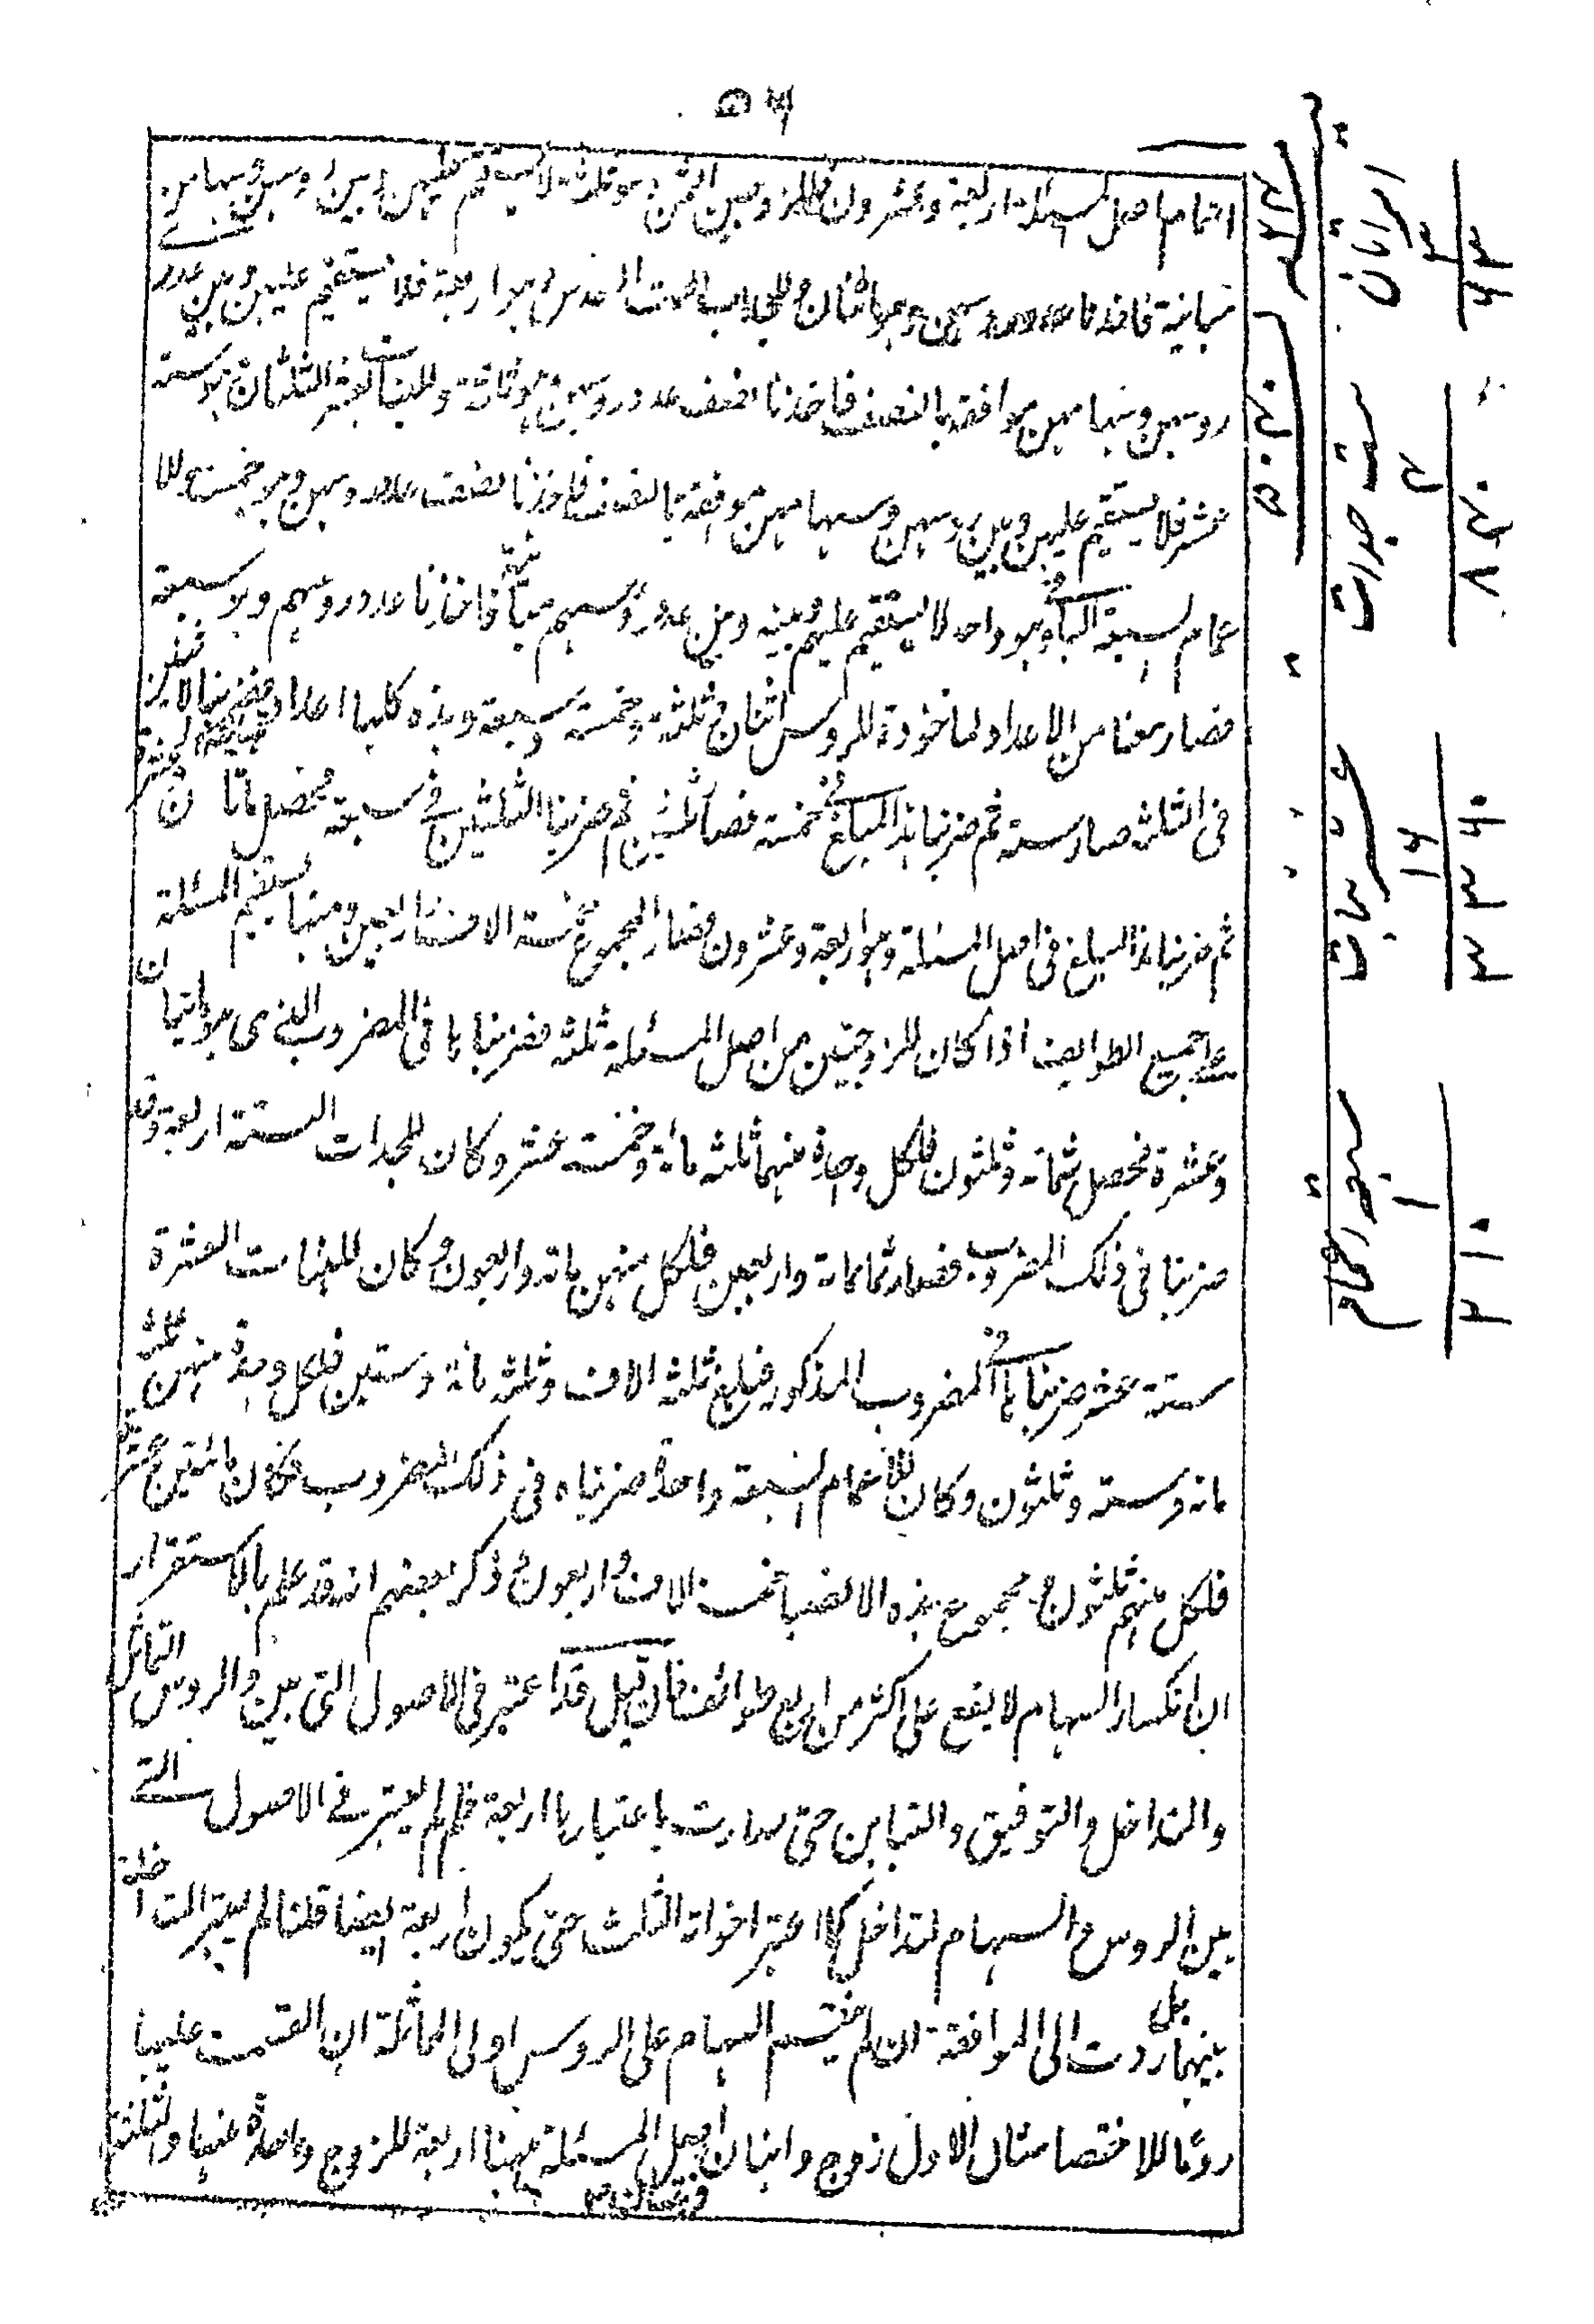 ٥٦
اعمام اصل المسئلة اربعة وعشرون للزوجين الثمن هو ثلثة لا يستقيم عليهن وبين روسهن وسهامهن
مباينة فاخذنا عدد روسهن وهو اثنان وللجدات الست السدس وهو اربعة فلا يستقيم عليهن وبين عدد
روسهن وسهامهن موافقة بالنصف فاخذنا نصف عدد روسهن وهو ثلثة وللبنات العشر الثلثان وهو ستة
عشر فلا يستقيم عليهن وبين روسهن وسهامهن موافقة بالنصف فاخذنا نصف عدد روسهن وهو خمسة وللا
عمام السبعة الباقي وهو واحد لا يستقيم عليهم وبينه وبين عدد روسهم مباينة فاخذنا عدد روسهم وهو سبعة
فصار معنا من الاعداد الماخوذة للروس اثنان وثلثة وخمسة وسبعة وهذه كلها اعداد متباينة فضربنا الاثنين
في الثلثة صار ستة ثم ضربنا هذا المبلغ في خمسة فصار ثلثين ثم ضربنا الثلثين في سبعة فحصل مائتان وعشرة
ثم ضربنا هذا المبلغ في اصل المسئلة وهو اربعة وعشرون فصار المجموع خمسة الاف واربعين ومنها يستقيم المسئلة
على جميع الطوايف اذا كان للزوجتين من اصل المسئلة ثلثة فضربناها في المضروب الذي هو مائتان
وعشرة فحصل ستمائة وثلثون فلكل واحدة منهما ثلثه مائة وخمسة عشر وكان للجدات الستة اربعة وقد
ضربنا في ذلك المضروب فصار ثمانمائة واربعين فلكل منهن مائة واربعون وكان للبنات العشرة
ستة عشر ضربناها في المضروب المذكور فبلغ ثلثة الاف وثلثه مائة وستين فلكل واحدة منهن ثلث
مائة وستة وثلثون وكان للاعمام السبعة واحد ضربناه في ذلك المضروب فكان مائتين وعشرة
فلكل منهم ثلثون ومجموع هذه الانصباء خمسة الاف واربعون وذكر بعضهم انه قد علم بالاستقراء
ان انكسار السهام لا يقع على اكثر من اربع طوائف فان قيل قد اعتبر في الاصول التي بين الروس والروس التماثل
والتداخل والتوفيق والتباين حتى صارت باعتبارها اربعة فلم لم يعتبر في الاصول التي
بين الروس والسهام التداخل كما اعتبر اخواته الثلث حتى يكون اربعة ايضا قلنا لم يعتبر التداخل
بينهما بل ردت الى الموافقة ان لم ينقسم السهام على الروس او الى المماثلة ان انقسمت عليها
روما للاختصار مثال الاول زوج وابنان اصل المسئلة ههنا اربعة للزوج واحد منها والثلثة
امراتان
٣
٦٣٠
ست جدات
٤
٨٤٠
عشر بنات
١٦
٣٣٦٠
سبعة اعمام
١
٢١٠
٢٤
٥٠٤٠